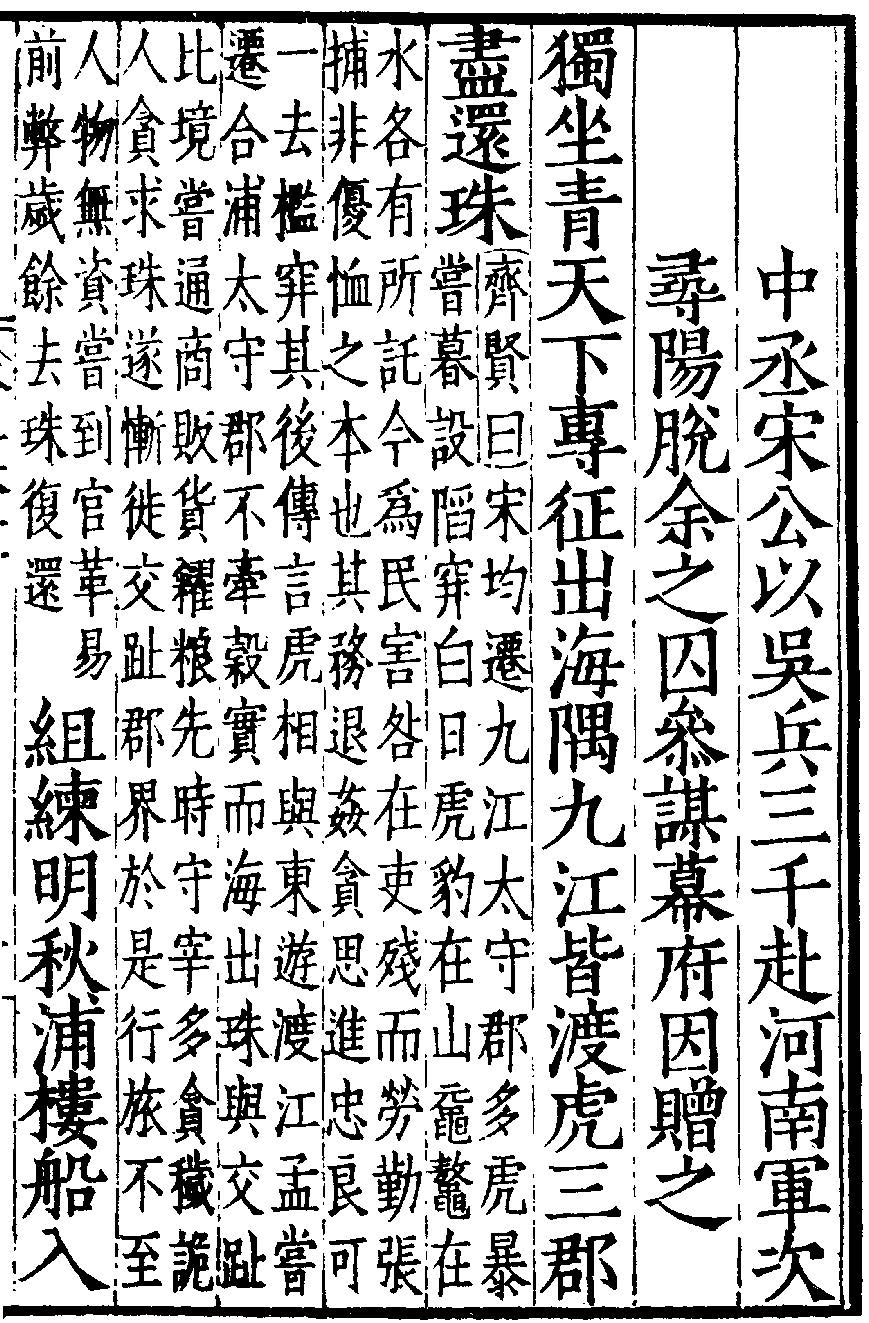 中丞宋公以吳兵三千赴河南軍次
尋陽脫余之囚參謀幕府因贈之
獨坐青天下專征出海隅九江皆渡虎三郡
盡還珠
齊賢曰宋均遷九江太守郡多虎暴
嘗暮設䧟穽白日虎豹在山黿鼇在
水各有所託今為民害咎在吏殘而勞勤張
捕非優恤之本也其務退姦貪思進忠良可
一去檻穽其後傳言虎相與東遊渡江孟嘗
遷合浦太守郡不牽榖實而海出珠與交趾
比境嘗通商敗貨糴粮先時守宰多貪穢詭
人貪求珠遂慚徙交趾郡界於是行旅不至
人物無資嘗到官革易
前弊歲餘去珠復還
組練明秋浦樓船入